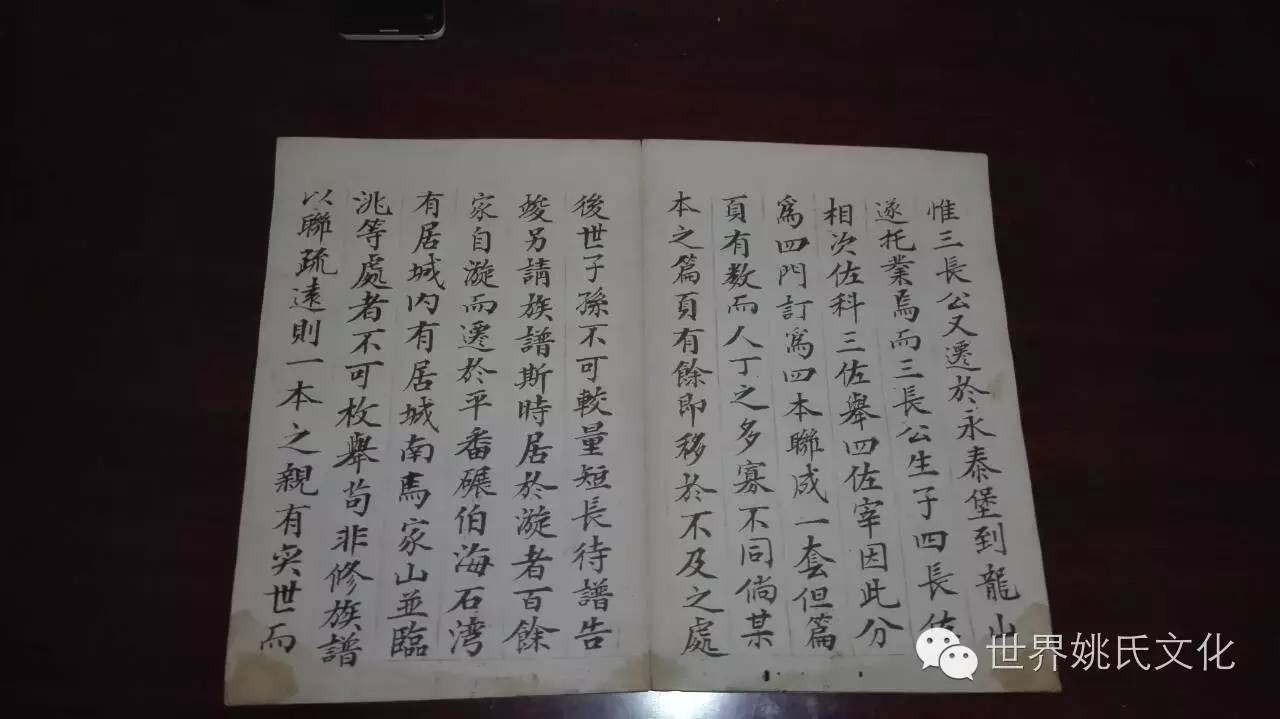 惟三長公又遷於永泰堡到龍山
遂托業焉而三長公生子四長佐
相次佐科三佐舉四佐宰因此分
爲四門訂爲四本聯成一套但篇
頁有数而人丁之多寡不同倘某
本之篇頁有餘即移於不及之處
後世子孫不可較量短長待譜告
竣另請族譜斯時居於漩者百餘
家自漩而遷於平番碾伯海石湾
有居城内有居城南馬家山並臨
洮等處者不可枚舉苟非修族譜
以聯疏遠則一本之親有奕世而
世界姚氏文化